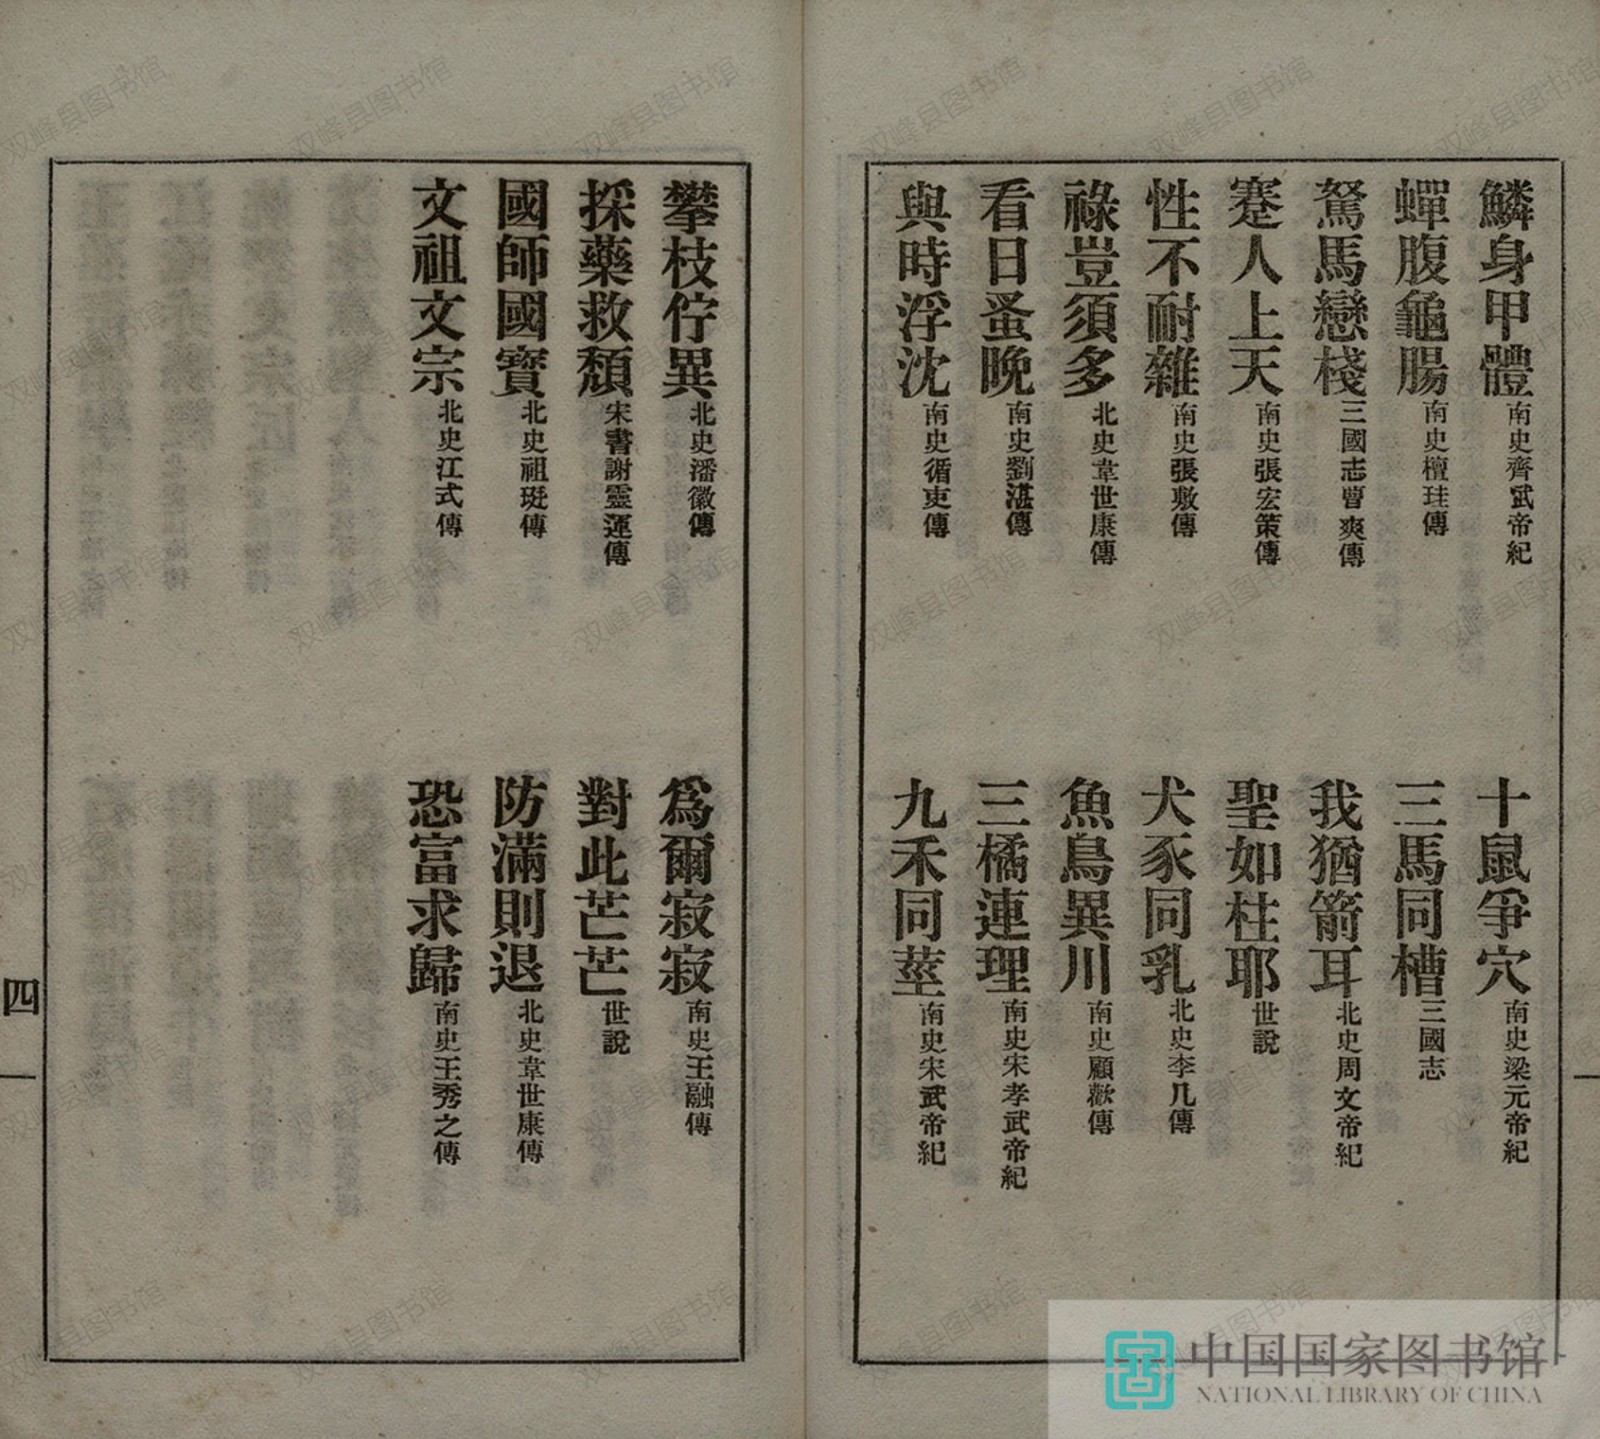 鱗身甲體南史齊武帝紀
十鼠爭穴南史梁元帝紀
蟬腹龜腸南史檀珪傳
三馬同槽三國志
駑馬戀棧三國志曹爽傳
我猶箭耳北史周文帝紀
蹇人上天南史張宏策傳
聖如柱耶世說
性不耐雜南史張敷傳
犬豕同乳北史李几傳
祿豈須多北史韋世康傳
魚鳥異川南史顧歡傳
看日蚤晚南史劉湛傳
三橘連理南史宋孝武帝紀
與時浮沈南史循吏傳
九禾同莖南史宋武帝紀
攀枝佇異北史潘徽傳
為爾寂寂南史王融傳
採藥救頹宋書謝靈運傳
對此芒芒世說
國師國寶北史祖珽傳
防滿則退北史韋世康傳
文祖文宗北史江式傳
恐富求歸南史王秀之傳
四
中国国家图书馆
NATIONAL LIBRARY OF CHINA
双峰县图书馆